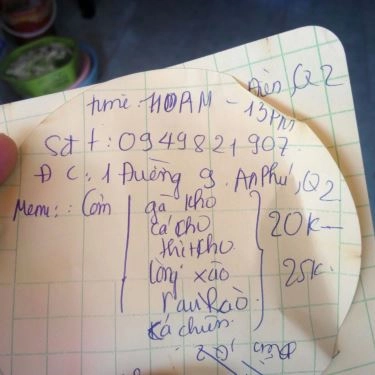 time: 110AM - 13PM
Điền, Q2
Sđt: 0949821907
ĐC: 1 Đường 9. An Phú, Q2
Menu: Cơm
gà kho
cá kho
thịt kho
lòng xào
rau xào
cá chiên
20K
25K
Điền, Q2